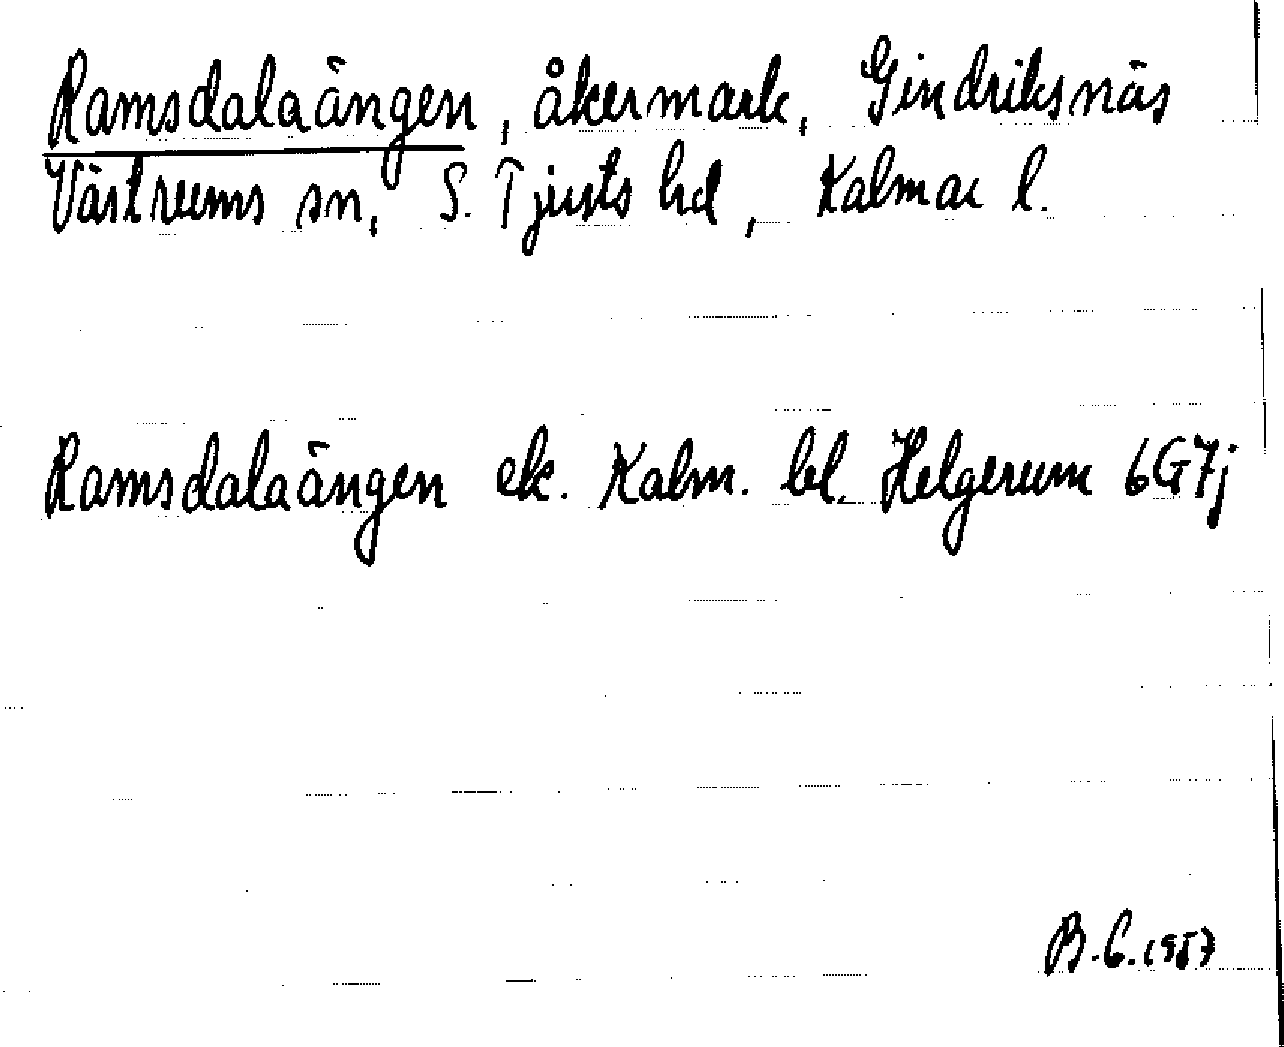 Ramsdalaängen, åkermark, Gindriksnäs
Västrums sn, S. Tjusts hd, Kalmar l.
Ramsdalaängen ek. Kalm. bl. Helgerum 6G7j
B.C. 1957